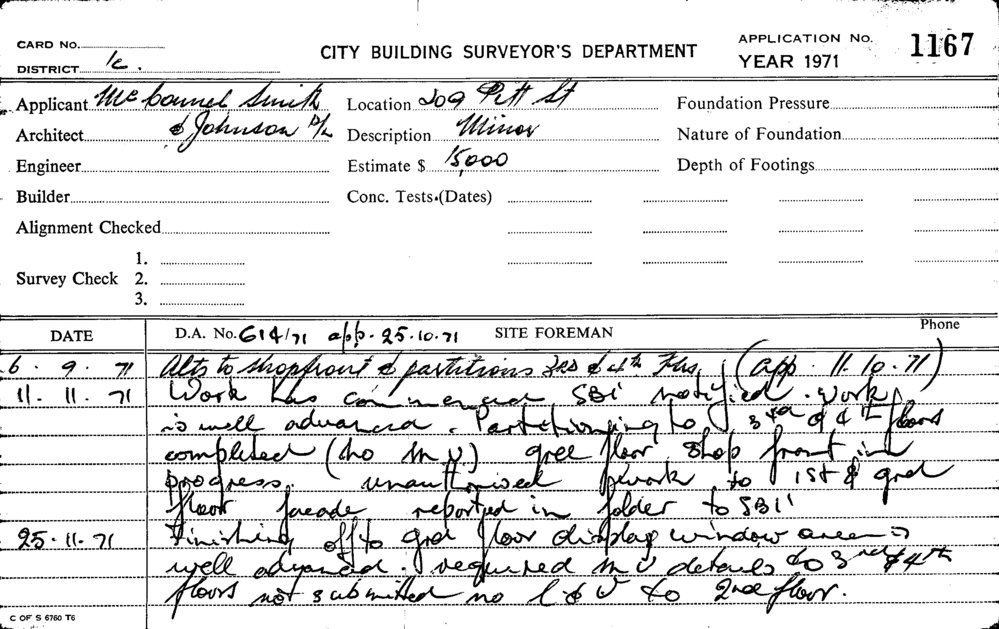 CARD No.
DISTRICT 1c.
CITY BUILDING SURVEYOR'S DEPARTMENT
APPLICATION No. 1167
YEAR 1971
Applicant McConnel Smith
Architect & Johnson P/L
Engineer
Builder
Alignment Checked
Survey Check 1.
2.
3.
Location 209 Pitt St
Description Minor
Estimate $ 15,000
Conc. Tests.(Dates)
Foundation Pressure
Nature of Foundation
Depth of Footings
DATE D.A. No. 614/71 app. 25.10.71 SITE FOREMAN Phone
6. 9. 71 Alts to shopfront & partitions 3rd & 4th Flrs. (app. 11.10.71)
11. 11. 71 Work has commenced SBI notified. work
is well advanced. Partitioning to 3rd & 4th floors
completed (no M V) grd floor shop front in
progress. unauthorised work to 1st & grd
floor facade reported in folder to SBI
25.11.71 Finishing off to grd floor display window area is
well advanced. required M V details to 3rd & 4th
floors not submitted no L & V to 2nd floor.
C OF S 6760 T6